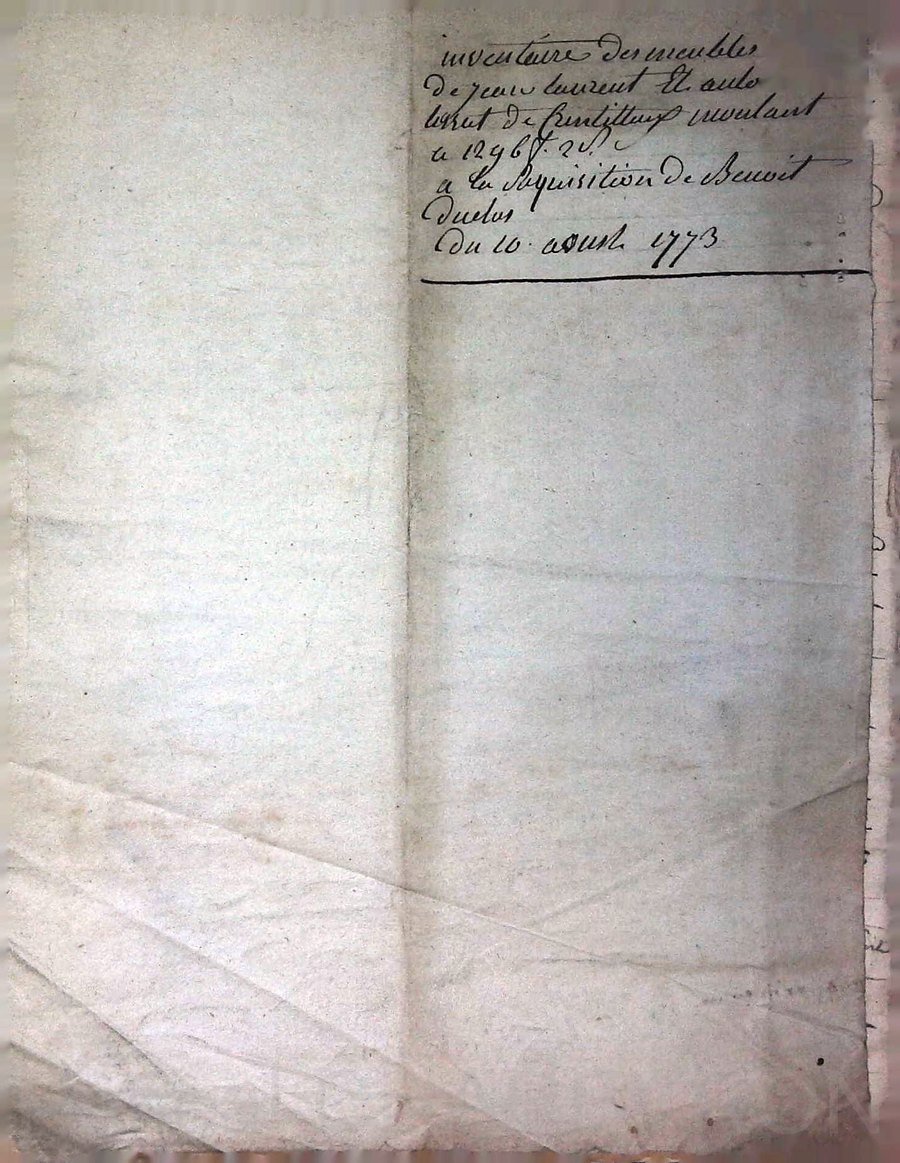 inventaire des meubles
de jean laurent Et
de montant
a 1296 lt. 2 s.
a la Requisition de Benoit
duclos
du 10 aoust 1773